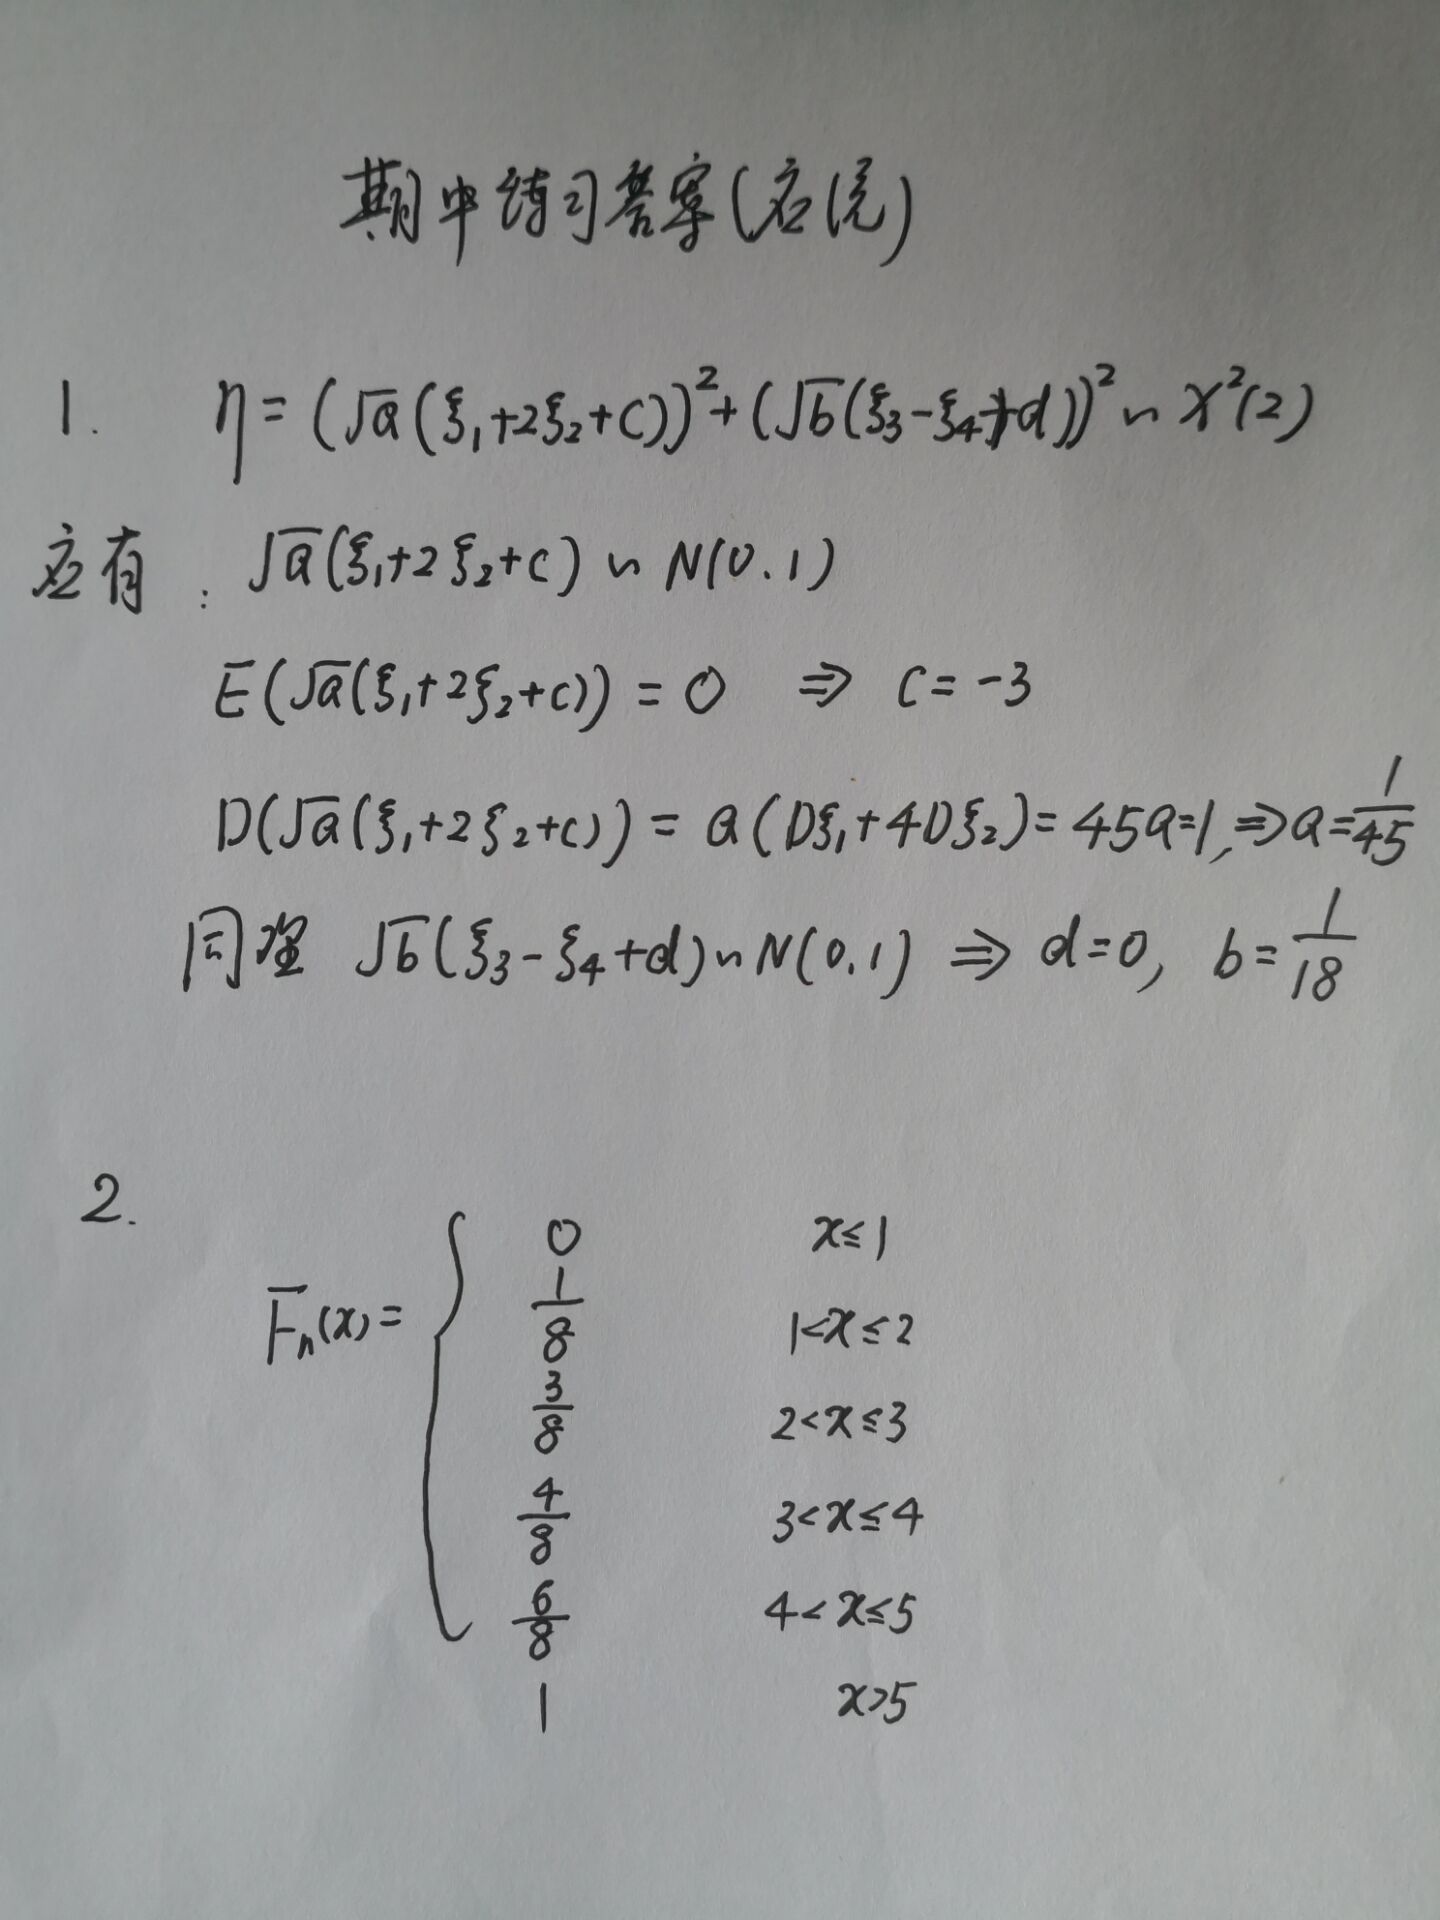 期中练习答案(应统)
1. η=(√a(ξ₁+2ξ₂+c))²+(√b(ξ₃-ξ₄+d))²~χ²(2)
应有: √a(ξ₁+2ξ₂+c)~N(0.1)
E(√a(ξ₁+2ξ₂+c))=0 ⇒ c=-3
D(√a(ξ₁+2ξ₂+c))=a(Dξ₁+4Dξ₂)=45a=1,⇒a=1/45
同理 √b(ξ₃-ξ₄+d)~N(0.1) ⇒ d=0, b=1/18
2.
0 x≤1
Fₙ(x)={ 1/8 1<x≤2
3/8 2<x≤3
4/8 3<x≤4
6/8 4<x≤5
1 x>5